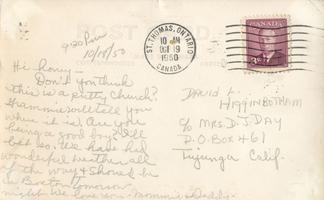 POST CARD
9:30 P.M.
10/18/50
ST. THOMAS, ONTARIO
10 AM
OCT 19
1950
CANADA
CANADA
3
Hi honey -
Don't you think
this is a pretty Church?
Grammie will tell you
where it is. Are you
being a good boy? I'll
bet so. We have had
wonderful weather all
of the way & should be
in Boston tomorrow
night. We love you - Mommie & Daddy.
DAVID L.
HIGGINBOTHAM
c/o MRS. D. J. DAY
P.O. BOX 461
Tujunga Calif.